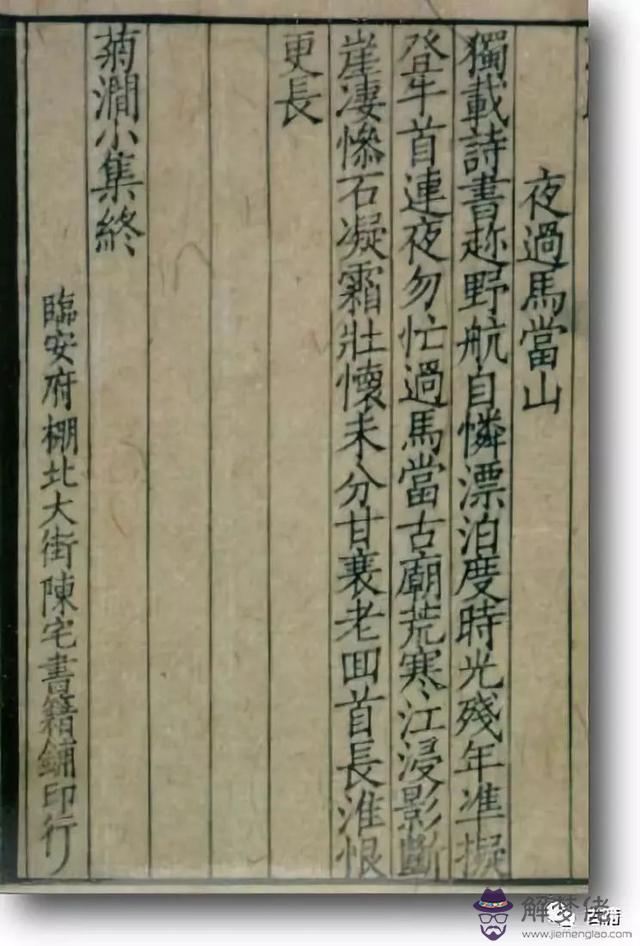 夜過馬當山
獨載詩書趂野航自憐漂泊度時光殘年準擬
登牛首連夜勿忙過馬當古廟荒寒江浸影斷
崖凄慘石凝霜壯懷未分甘衰老囬首長淮恨
更長
菊澗小集終
臨安府棚北大街陳宅書籍鋪印行
解梦佬
www.jiemenglao.com